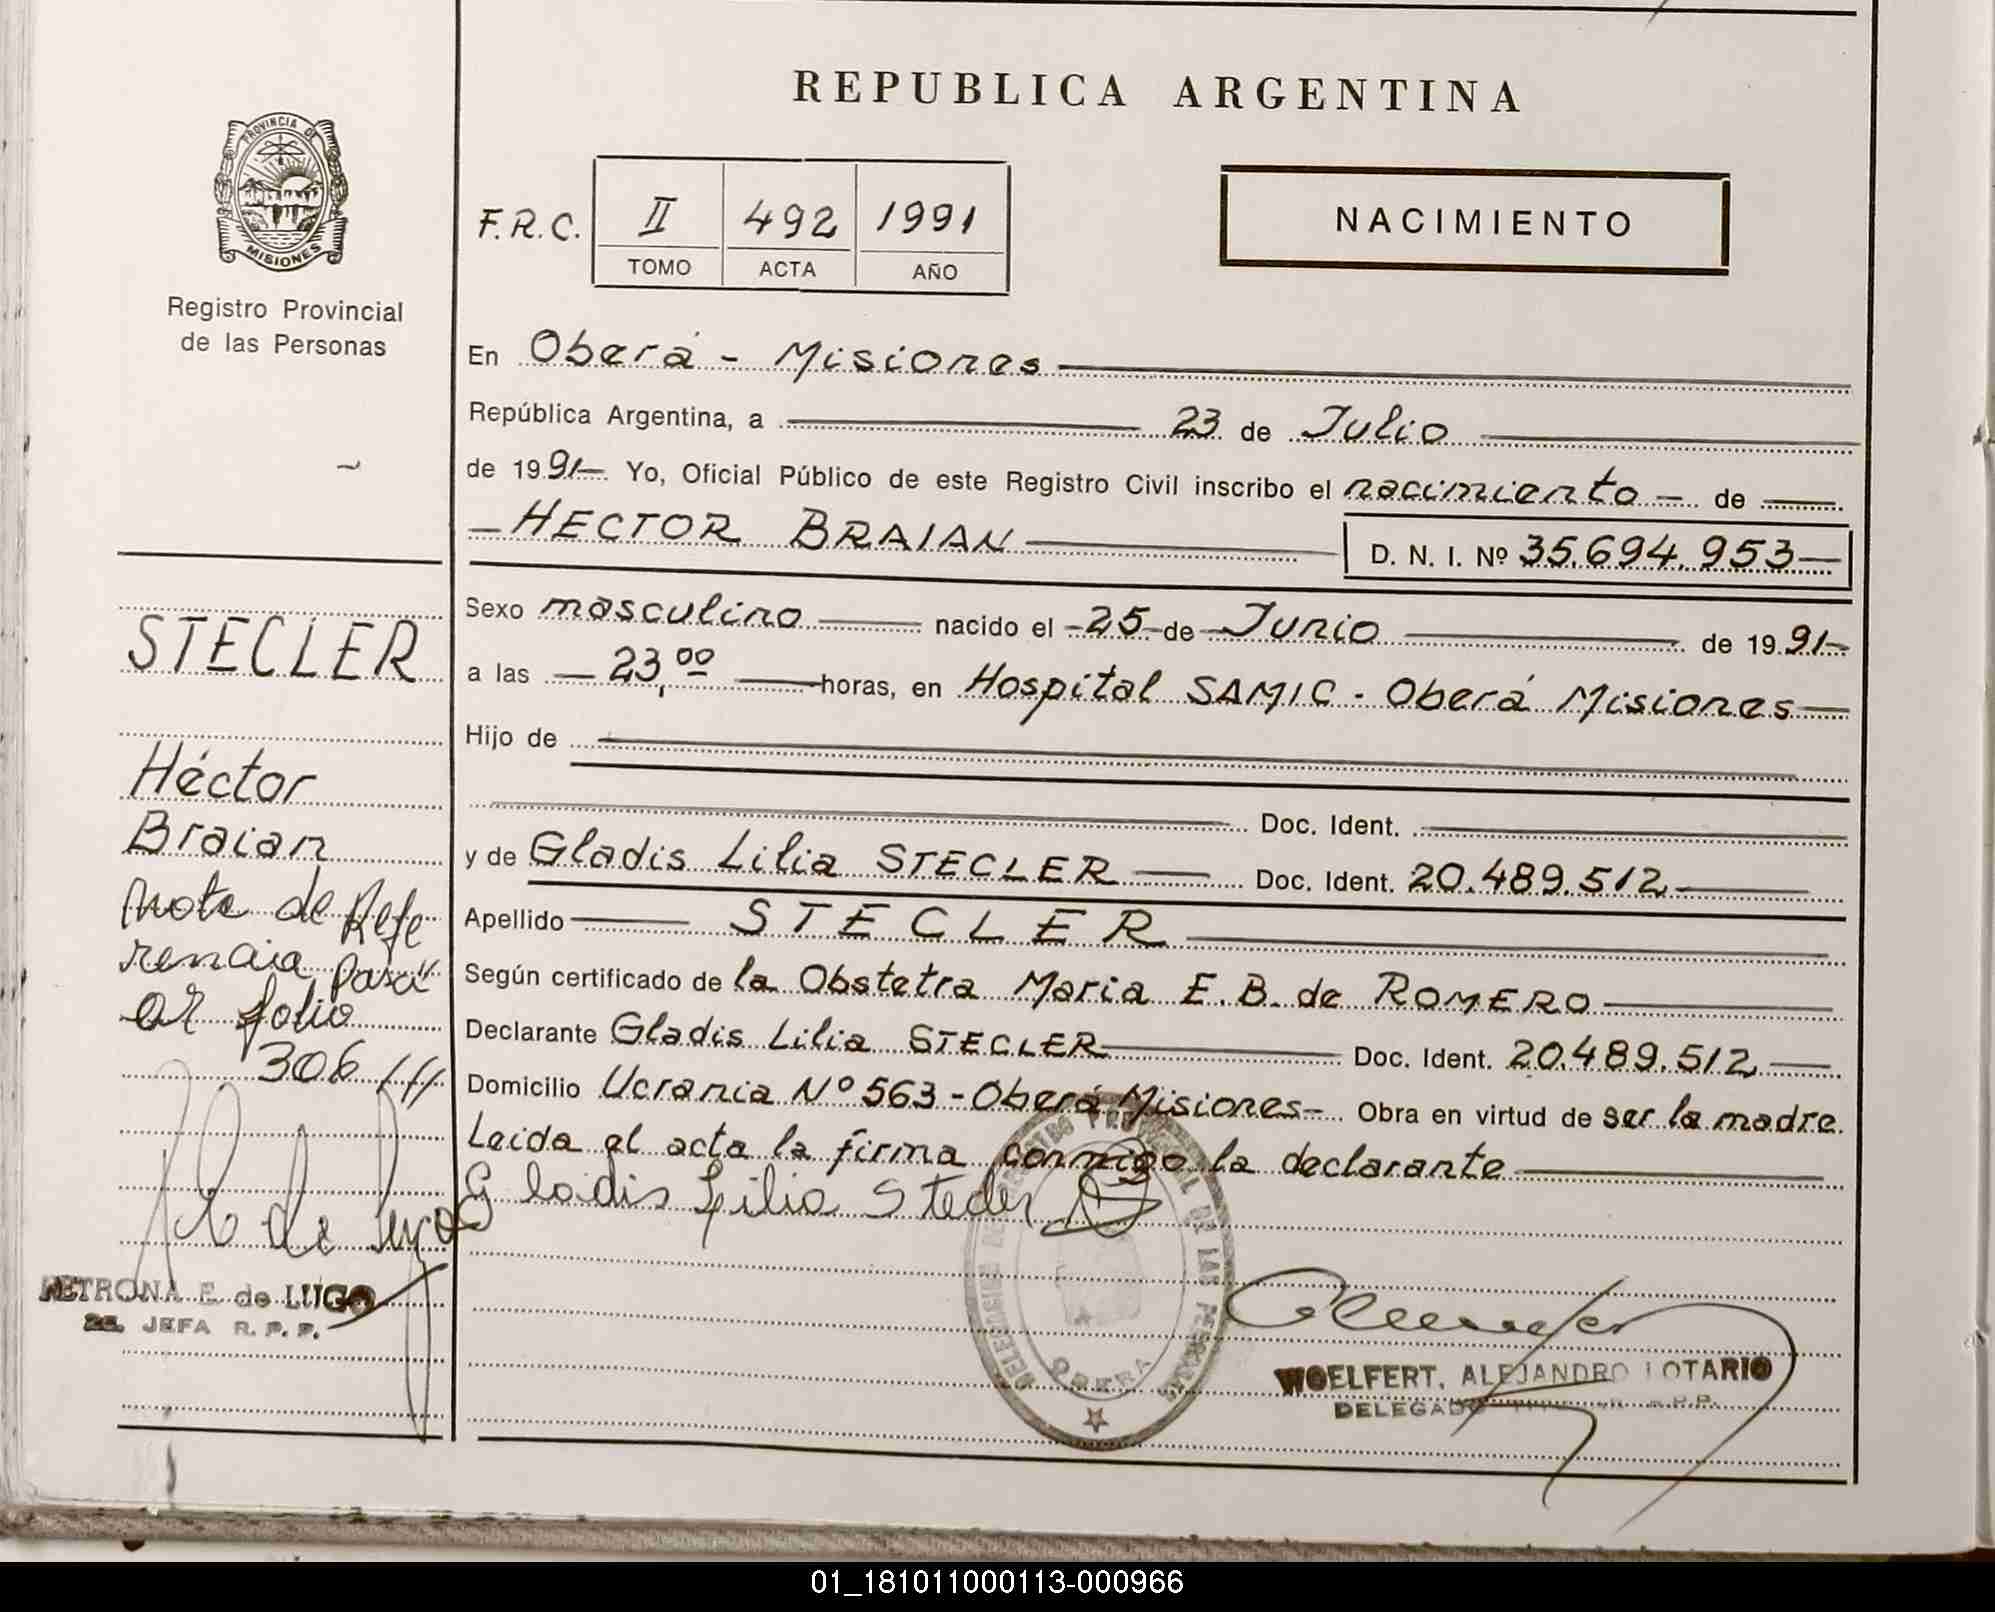 REPUBLICA ARGENTINA
PROVINCIA DE
MISIONES
Registro Provincial
de las Personas
F.R.C. II 492 1991
TOMO ACTA AÑO
NACIMIENTO
En Oberá - Misiones
República Argentina, a 23 de Julio
de 1991 Yo, Oficial Público de este Registro Civil inscribo el nacimiento de
HECTOR BRAIAN D. N. I. Nº 35.694.953
Sexo masculino nacido el 25 de Junio de 1991
a las 23,00 horas, en Hospital SAMIC - Oberá Misiones
Hijo de
Doc. Ident.
y de Gladis Lilia STECLER Doc. Ident. 20.489.512
Apellido STECLER
Según certificado de la Obstetra Maria E. B. de ROMERO
Declarante Gladis Lilia STECLER Doc. Ident. 20.489.512
Domicilio Ucrania Nº 563 - Oberá Misiones Obra en virtud de ser la madre.
Leida el acta la firma conmigo la declarante
Gladis Lilia Stecler
STECLER
Héctor
Braian
Nota de Refe
rencia
folio
306
PETRONA E. de LUGO
JEFA R. P. P.
DELEGACION DEL REGISTRO PROVINCIAL DE LAS PERSONAS
OBERA
WOELFERT, ALEJANDRO LOTARIO
DELEGADO
01_181011000113-000966